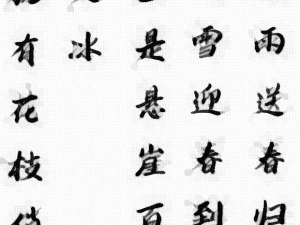 雨送春归
雪迎春到
是悬崖百
冰
有花枝俏